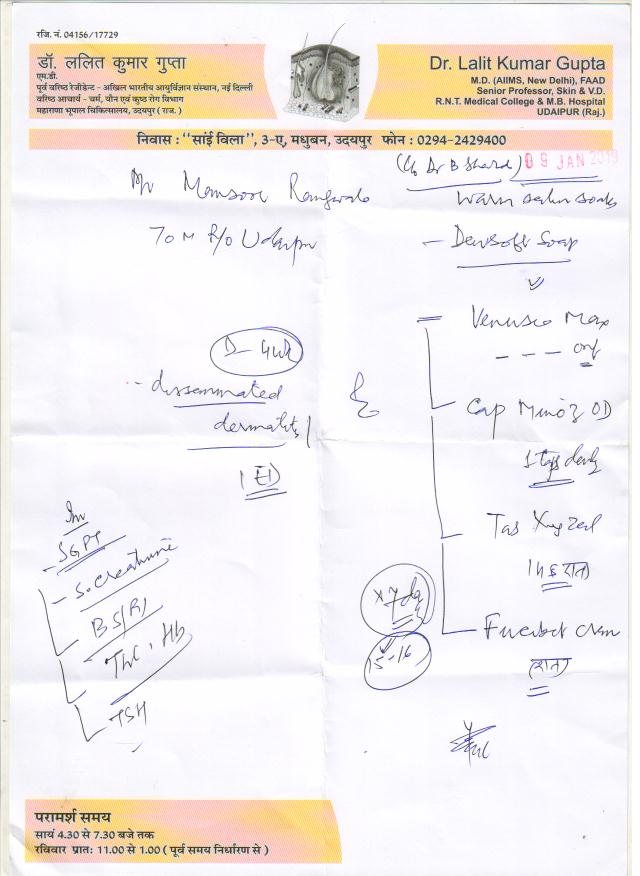 रजि. नं. 04156/17729
डॉ. ललित कुमार गुप्ता
एम.डी.
पूर्व वरिष्ठ रेजीडेन्ट - अखिल भारतीय आयुर्विज्ञान संस्थान, नई दिल्ली
वरिष्ठ आचार्य - चर्म, यौन एवं कुष्ठ रोग विभाग
महाराणा भूपाल चिकित्सालय, उदयपुर ( राज. )
Dr. Lalit Kumar Gupta
M.D. (AIIMS, New Delhi), FAAD
Senior Professor, Skin & V.D.
R.N.T. Medical College & M.B. Hospital
UDAIPUR (Raj.)
निवास : ‘‘सांई विला’’, 3-ए, मधुबन, उदयपुर फोन : 0294-2429400
09 JAN 2019
Mr Mansoor
70 M R/O Udaipur
D - 4wk
- disseminated
dermatitis
IED
Inv
- SGPT
- S. Creatinine
BS(R)
TLC, Hb
TSH
Warm saline soaks
- Soap
Venusia Max
Cap Minoz OD
1 daily
रात
x 7 day
15-16
(रात)
परामर्श समय
सायं 4.30 से 7.30 बजे तक
रविवार प्रात: 11.00 से 1.00 ( पूर्व समय निर्धारण से )